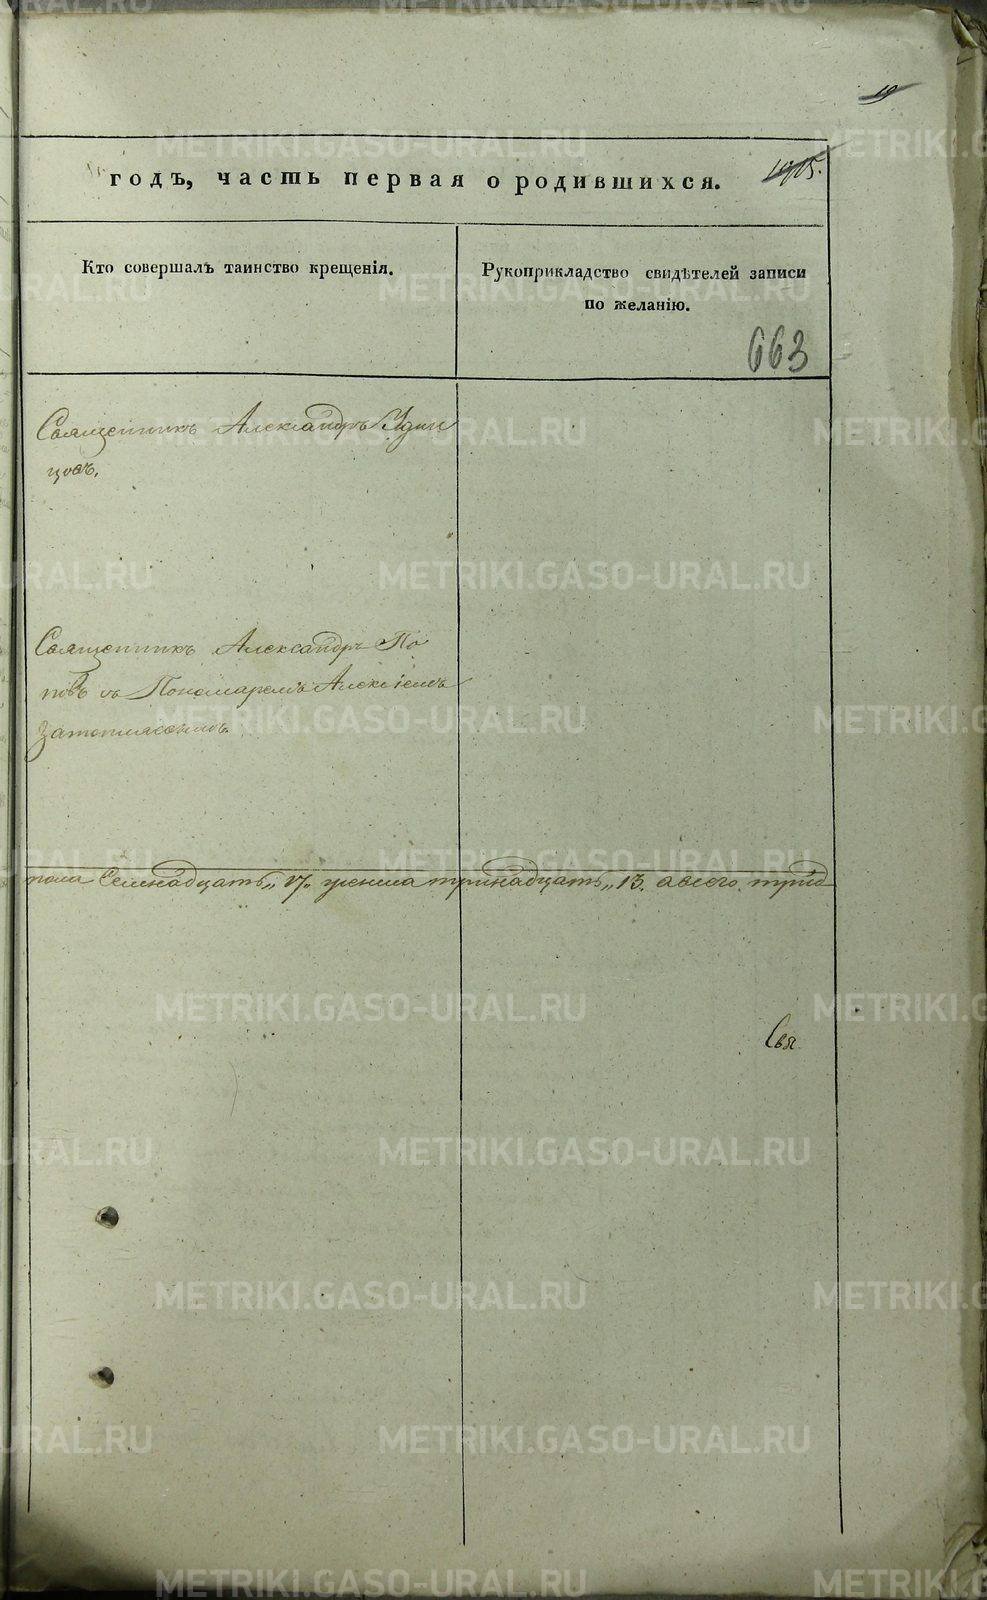 19
годъ, часть первая о родившихся.
Кто совершалъ таинство крещенія.
Рукоприкладство свидѣтелей записи
по желанію.
663
Священникъ Александръ Удин
цовъ.
Священникъ Александръ По
повъ съ Пономаремъ Алексіемъ
пола Семнадцать „17„ женска тринадцать „13. авсего трид
Свя
METRIKI.GASO-URAL.RU